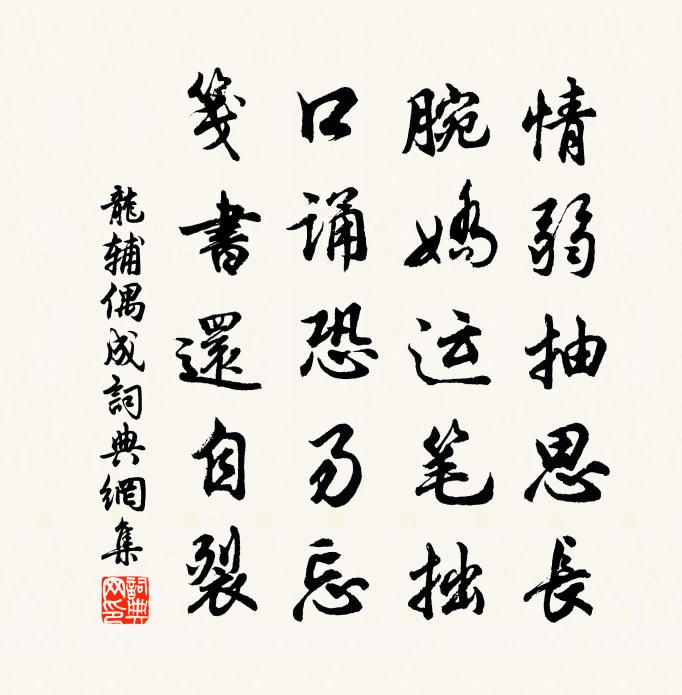 情弱抽思長
腕嬌运笔拙
口誦恐易忘
箋書還自裂
龍辅偶成詞典網集
詞典網印